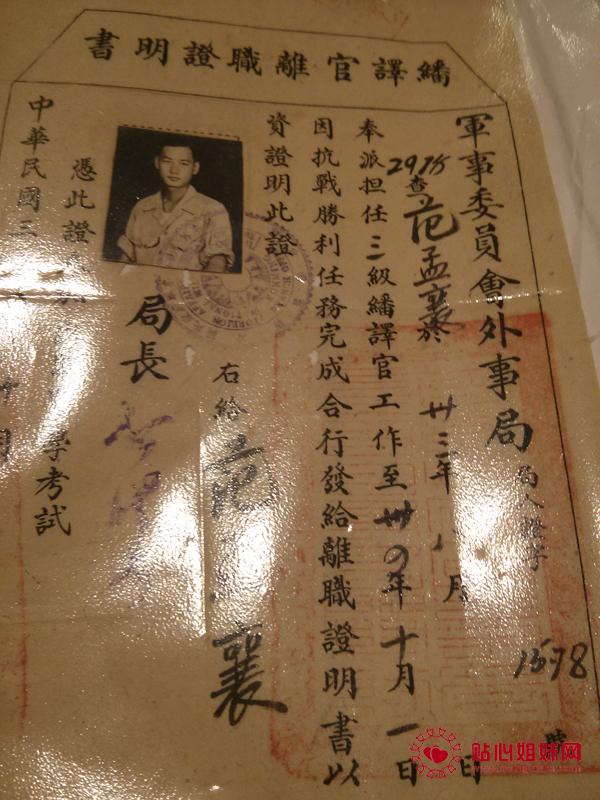 繙譯官離職證明書
軍事委員會外事局
局人證字
1578
號
2975
查范孟襄於卅三年八月日
奉派担任三級繙譯官工作至卅四年十月一日
因抗戰勝利任務完成合行發給離職證明書以
資證明此證
右給范
襄
局長
憑此證
學考試
中華民國三
月
贴心姐妹网